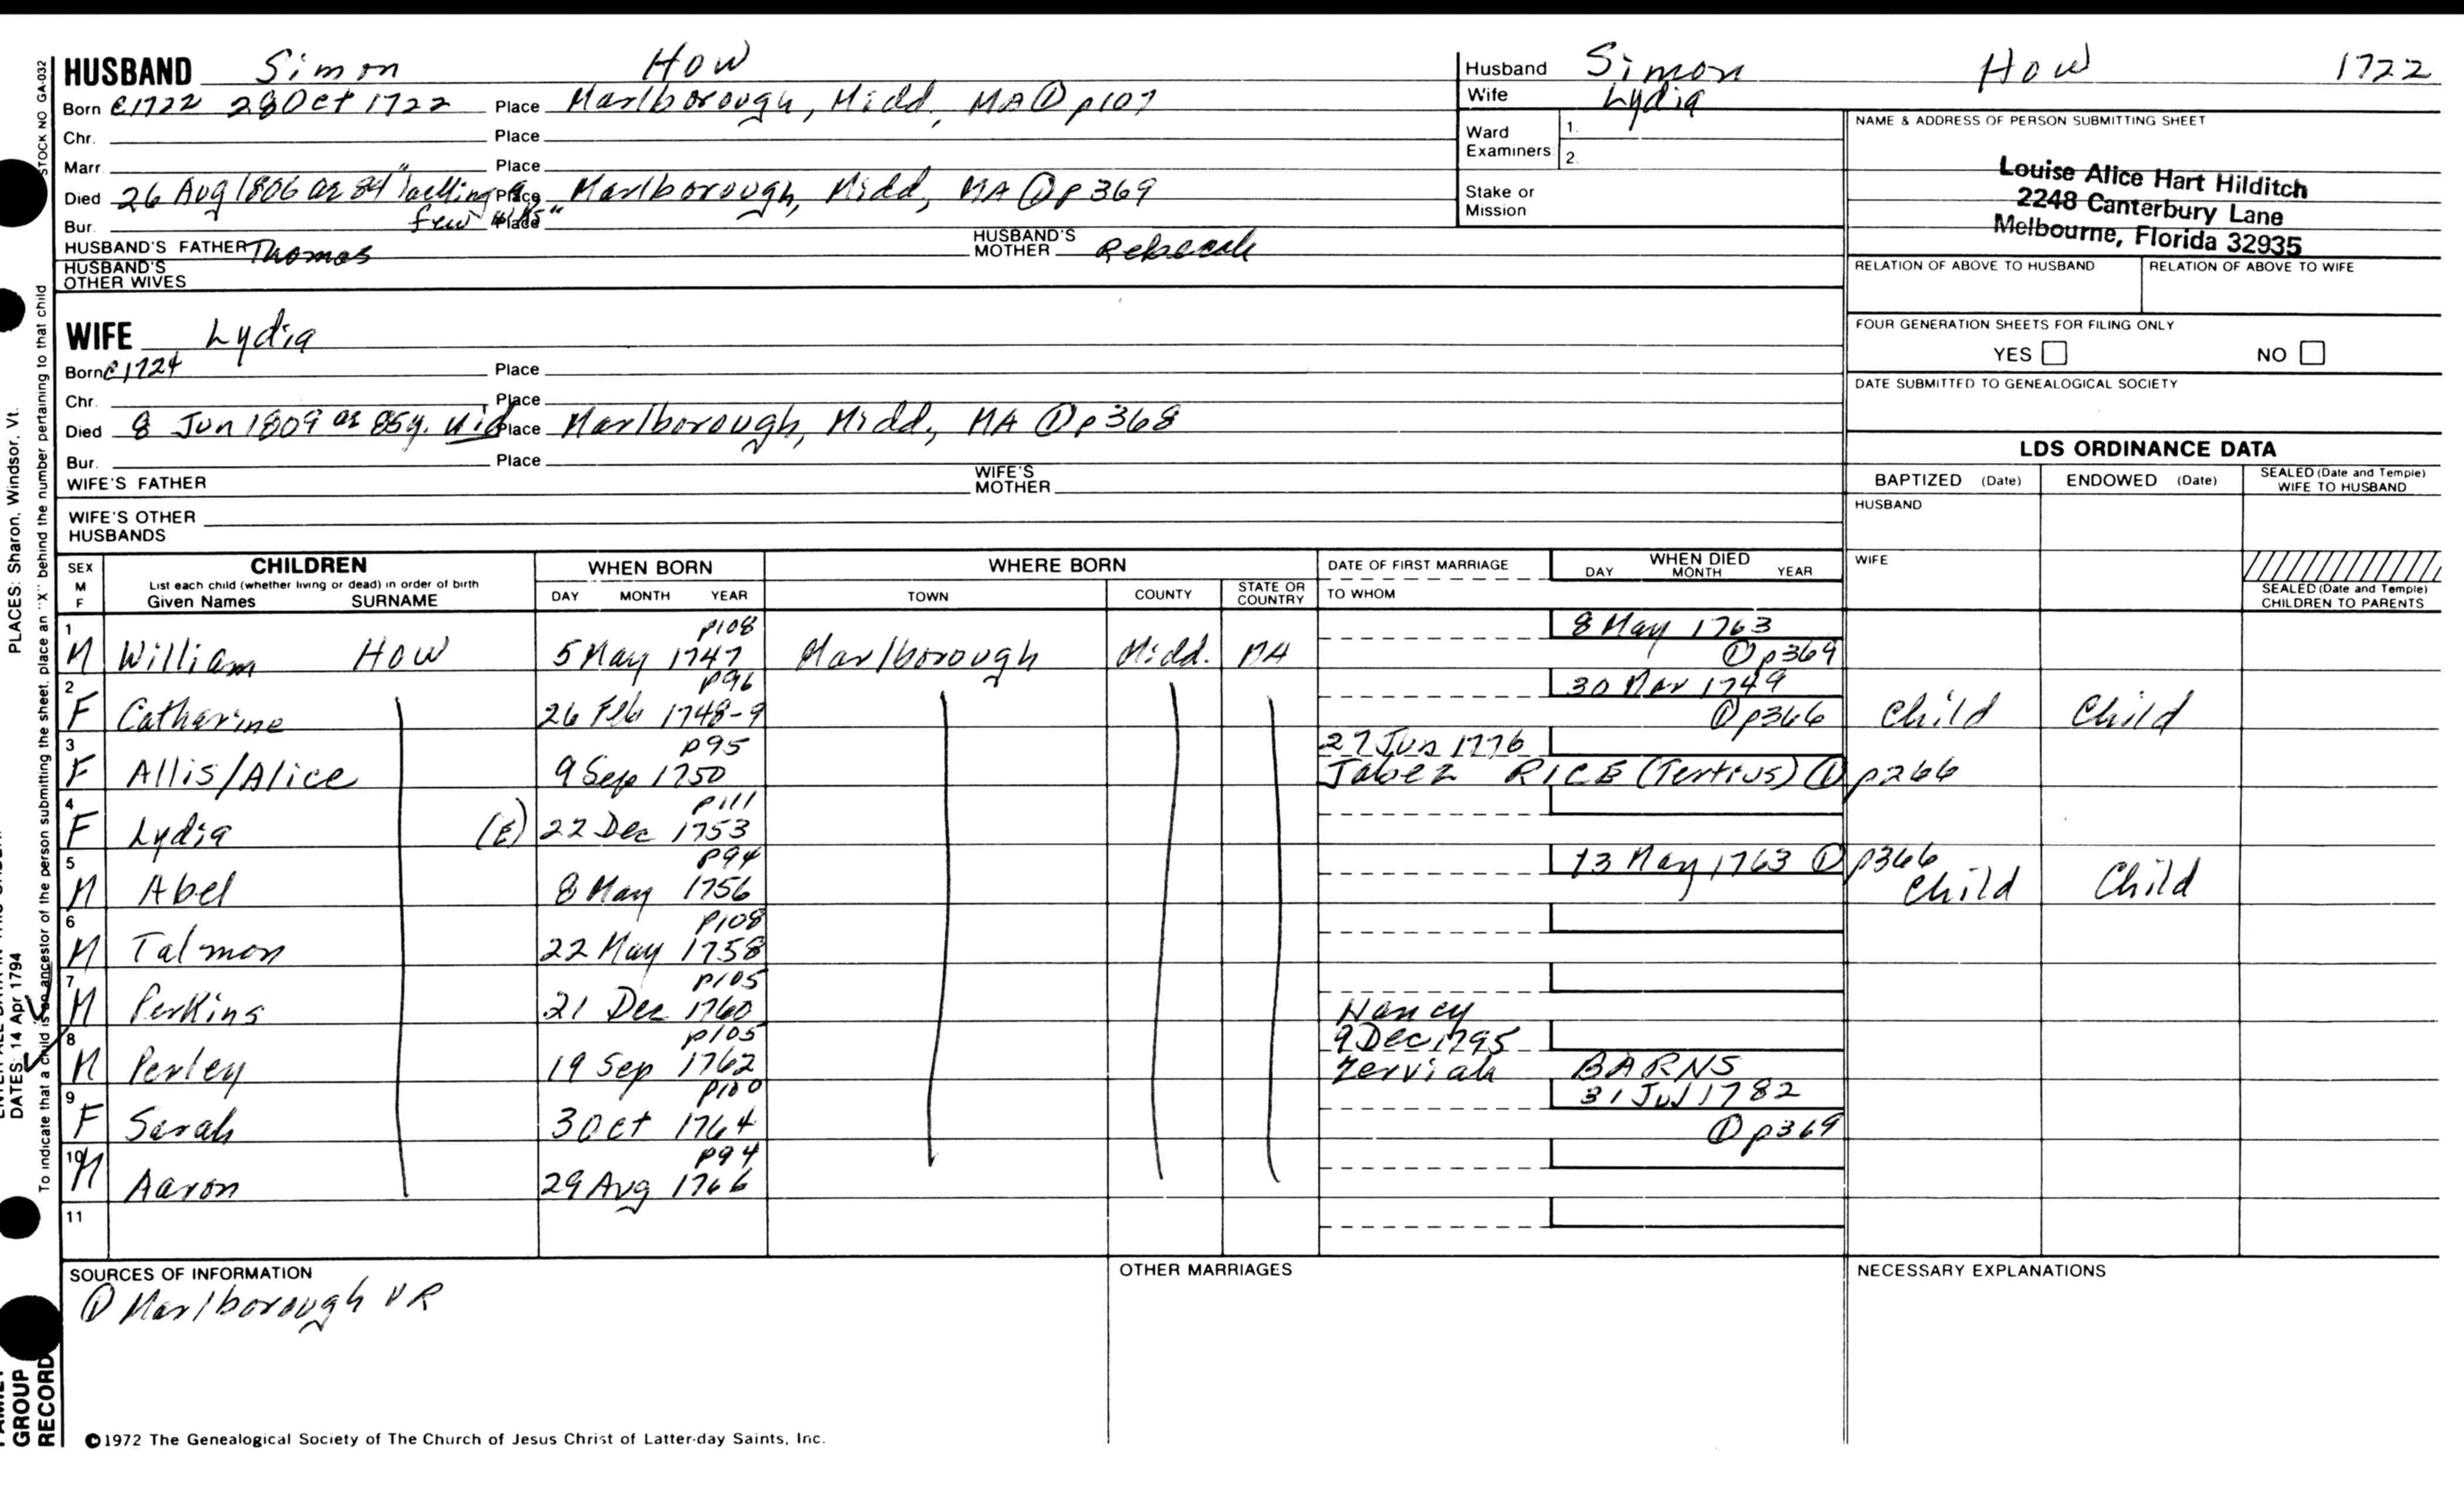 HUSBAND Simon How
Born C1722 28 Oct 1722 Place Marlborough, Midd, MA ① p107
Chr. Place
Marr. Place
Died 26 Aug 1806 ae 84 "lacking a Place Marlborough, Midd, MA ① p369
few" Place
Bur.
HUSBAND'S FATHER Thomas HUSBAND'S MOTHER Rebecah
HUSBAND'S OTHER WIVES
WIFE Lydia
Born C1724 Place
Chr. Place
Died 8 Jun 1809 ae 85y. wid Place Marlborough, Midd, MA ① p368
Bur. Place
WIFE'S FATHER WIFE'S MOTHER
WIFE'S OTHER HUSBANDS
Husband Simon How 1722
Wife Lydia
Ward Examiners: 1. 2.
Stake or Mission
NAME & ADDRESS OF PERSON SUBMITTING SHEET
Louise Alice Hart Hilditch
2248 Canterbury Lane
Melbourne, Florida 32935
RELATION OF ABOVE TO HUSBAND RELATION OF ABOVE TO WIFE
FOUR GENERATION SHEETS FOR FILING ONLY
YES NO
DATE SUBMITTED TO GENEALOGICAL SOCIETY
LDS ORDINANCE DATA
BAPTIZED (Date) ENDOWED (Date) SEALED (Date and Temple) WIFE TO HUSBAND
HUSBAND
WIFE
SEALED (Date and Temple) CHILDREN TO PARENTS
SEX M F CHILDREN WHEN BORN WHERE BORN DATE OF FIRST MARRIAGE WHEN DIED
List each child (whether living or dead) in order of birth
Given Names SURNAME DAY MONTH YEAR TOWN COUNTY STATE OR COUNTRY TO WHOM DAY MONTH YEAR
1 p108 8 May 1763
M William How 5 May 1747 Marlborough Midd. MA ① p369
2 p96 30 Mar 1749
F Catharine 26 Feb 1748-9 ① p366 Child Child
3 p95 27 Jun 1776
F Allis/Alice 9 Sep 1750 Jabez RICE (Tertius) ① p266
4 p111
F Lydia (E) 22 Dec 1753
5 p94 13 May 1763 ① p366
M Abel 8 May 1756 Child Child
6 p108
M Talmon 22 May 1758
7 p105
M Perkins 21 Dec 1760 Nancy
8 p105 9 Dec 1795
M Perley 19 Sep 1762 Zerviah BARNS
9 p100 31 Jul 1782
F Sarah 3 Oct 1764 ① p369
10 p94
M Aaron 29 Aug 1766
11
SOURCES OF INFORMATION OTHER MARRIAGES NECESSARY EXPLANATIONS
① Marlborough VR
©1972 The Genealogical Society of The Church of Jesus Christ of Latter-day Saints, Inc.
STOCK NO GA-032
To indicate that a child is an ancestor of the person submitting the sheet, place an "X" behind the number pertaining to that child
PLACES: Sharon, Windsor, Vt.
DATES: 14 Apr 1794
GROUP
RECORD